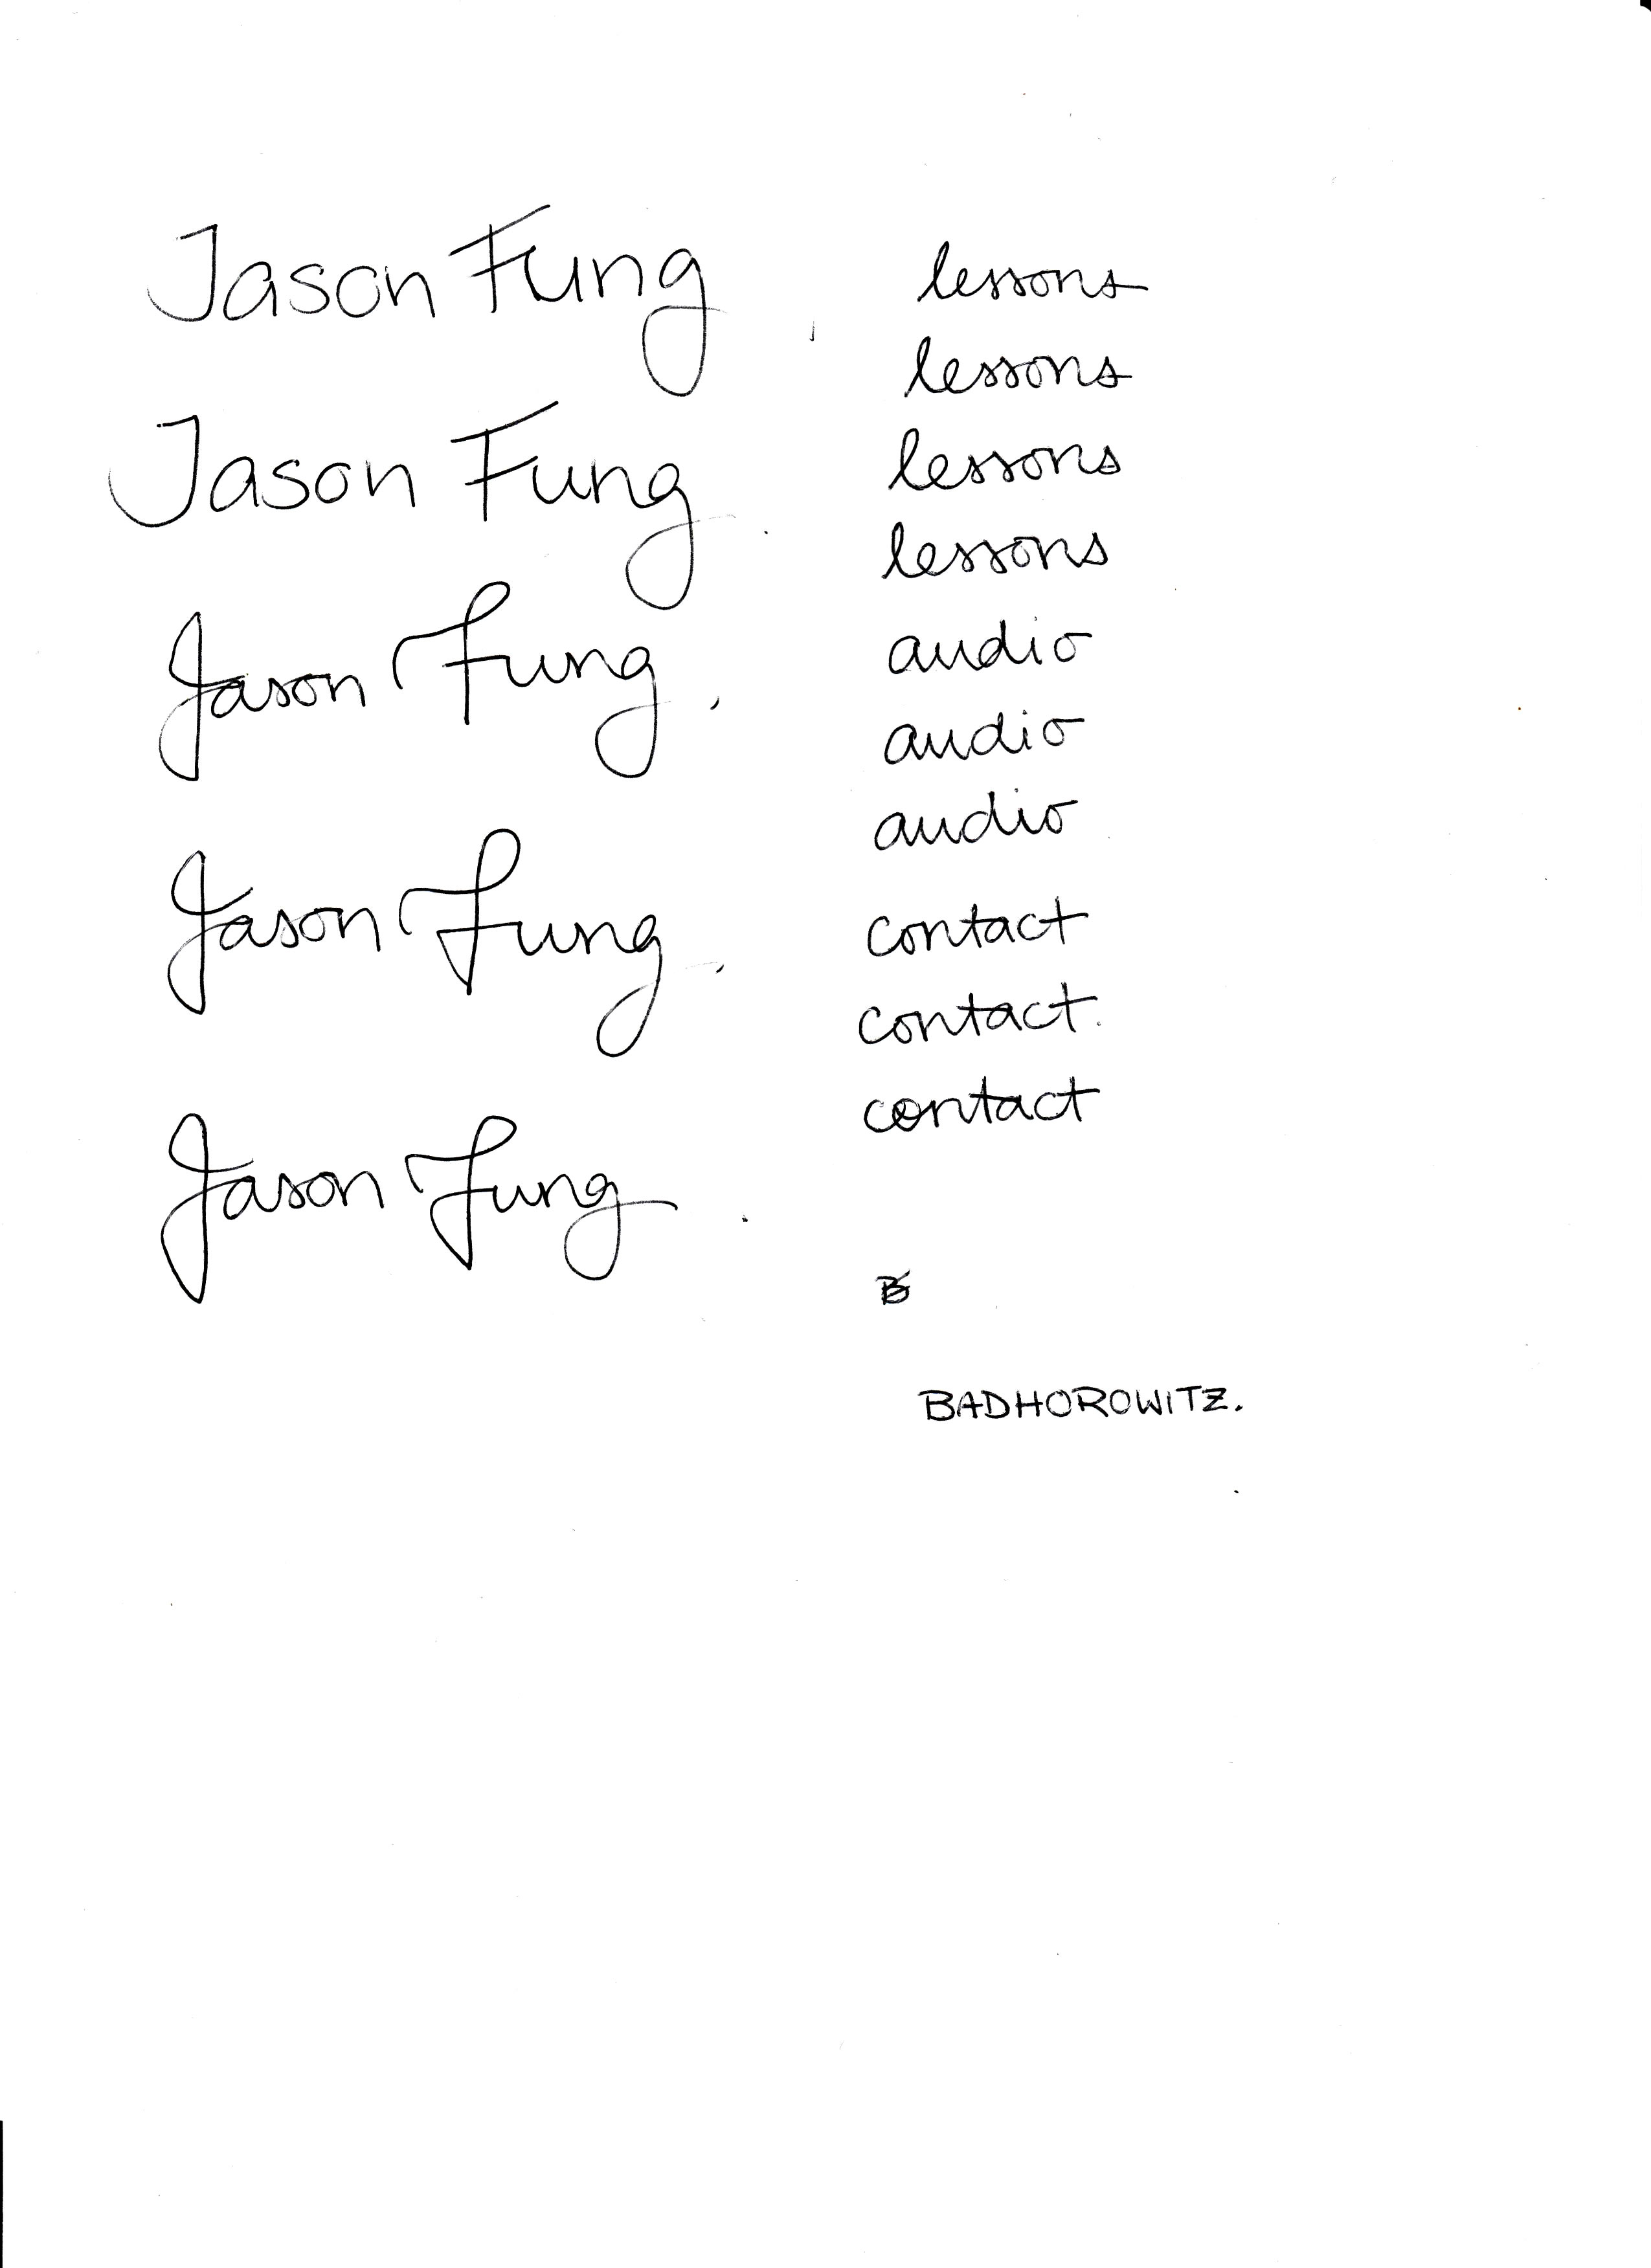 Jason Fung
Jason Fung
Jason Fung
Jason Fung
Jason Fung
lessons
lessons
lessons
lessons
audio
audio
audio
contact
contact.
contact
B
BADHOROWITZ.